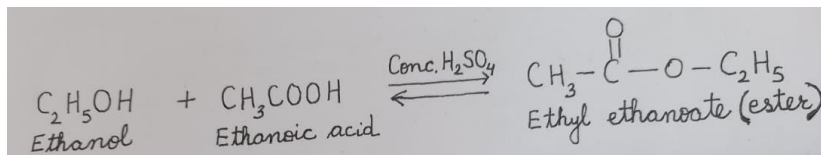 C₂H₅OH + CH₃COOH Conc. H₂SO₄ ⇌ CH₃-C(=O)-O-C₂H₅
Ethanol Ethanoic acid Ethyl ethanoate (ester)